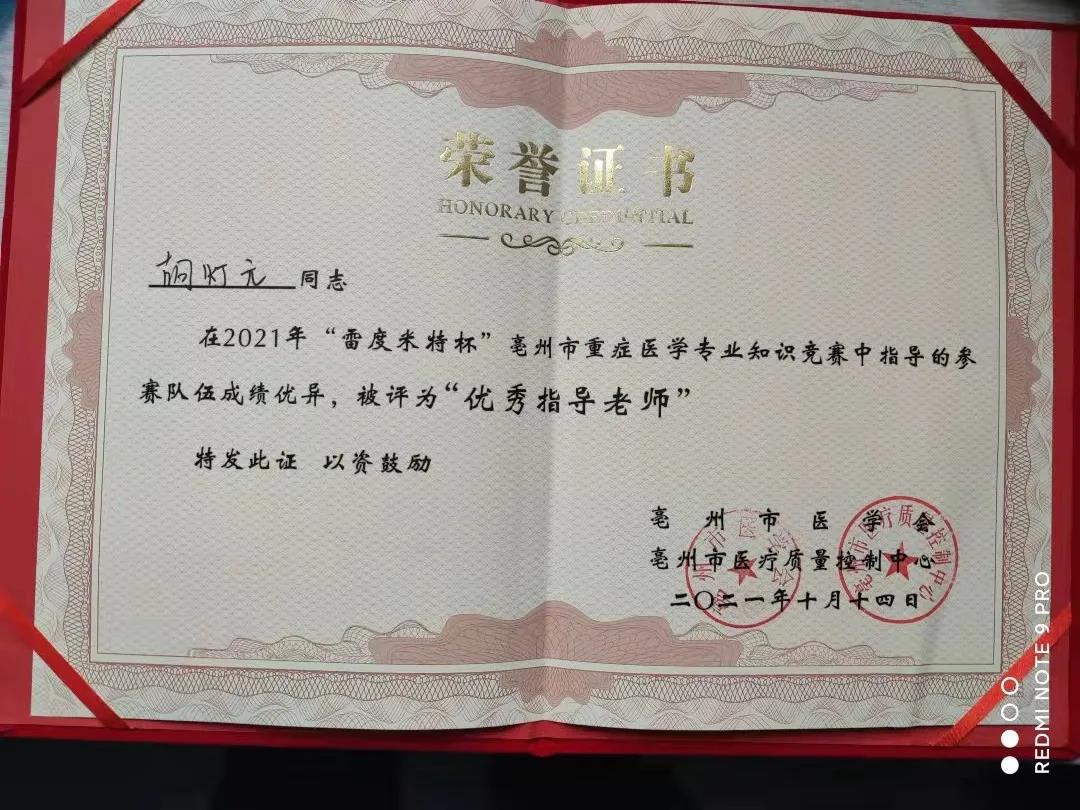 荣誉证书
HONORARY CREDENTIAL
胡灯元 同志
在2021年“雷度米特杯”亳州市重症医学专业知识竞赛中指导的参
赛队伍成绩优异，被评为“优秀指导老师”
特发此证 以资鼓励
亳州市医学会
亳州市医疗质量控制中心
二〇二一年十月十四日
亳州市医学会
亳州市医疗质量控制中心
REDMI NOTE 9 PRO